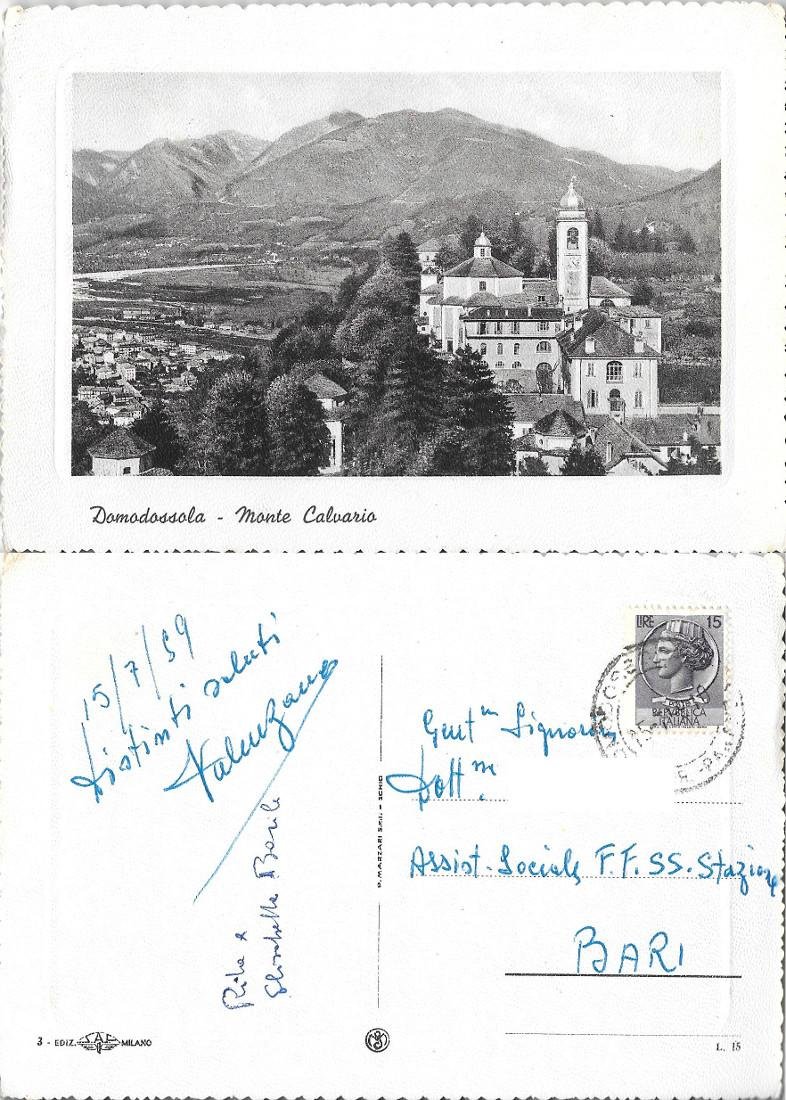 Domodossola - Monte Calvario
15/7/59
Distinti saluti
Valenzano
Rita e
Elisabetta Barile
LIRE 15
ITALIA
REPUBBLICA
ITALIANA
Gent.ma Signorina
Dott.
Assist. Sociale F.F.SS. Stazione
BARI
P. MARZARI S.R.L. - SCHIO
3 - EDIZ. SAF MILANO
L. 15